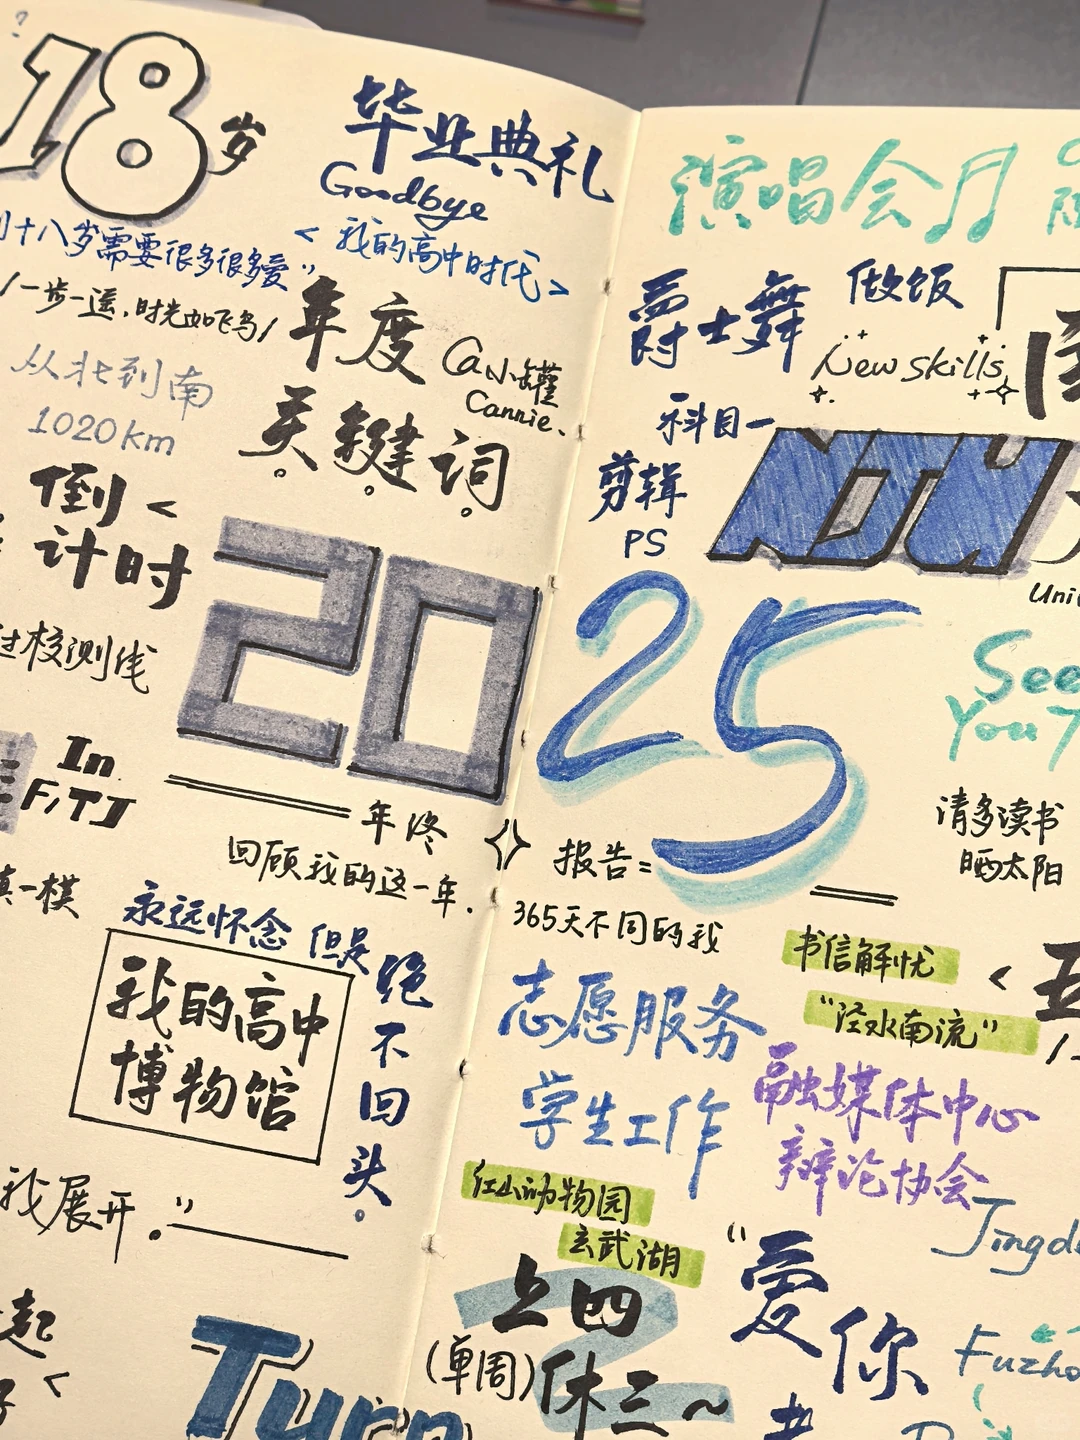 18岁
毕业典礼
Goodbye
<我的高中时代>
十八岁需要很多很多爱"
/一步一遥,时光如飞鸟/
年度
关键词
@小罐
Cannie.
从北到南
1020km
倒
计时
<
校测线
20
In
F,TJ
年终
回顾我的这一年.
一模
永远怀念 但是
绝不回头。
我的高中
博物馆
我展开。"
起
<
Turn
演唱会
爵士舞
做饭
New skills
科目一
剪辑
PS
NJU
Uni
25
See
You
请多读书
晒太阳
报告=
365天不同的我
书信解忧
<
"泾水南流"
志愿服务
学生工作
融媒体中心
辩论协会
红山动物园
玄武湖
上四
(单周)休三~
"爱
你
Jingd
Fuzho